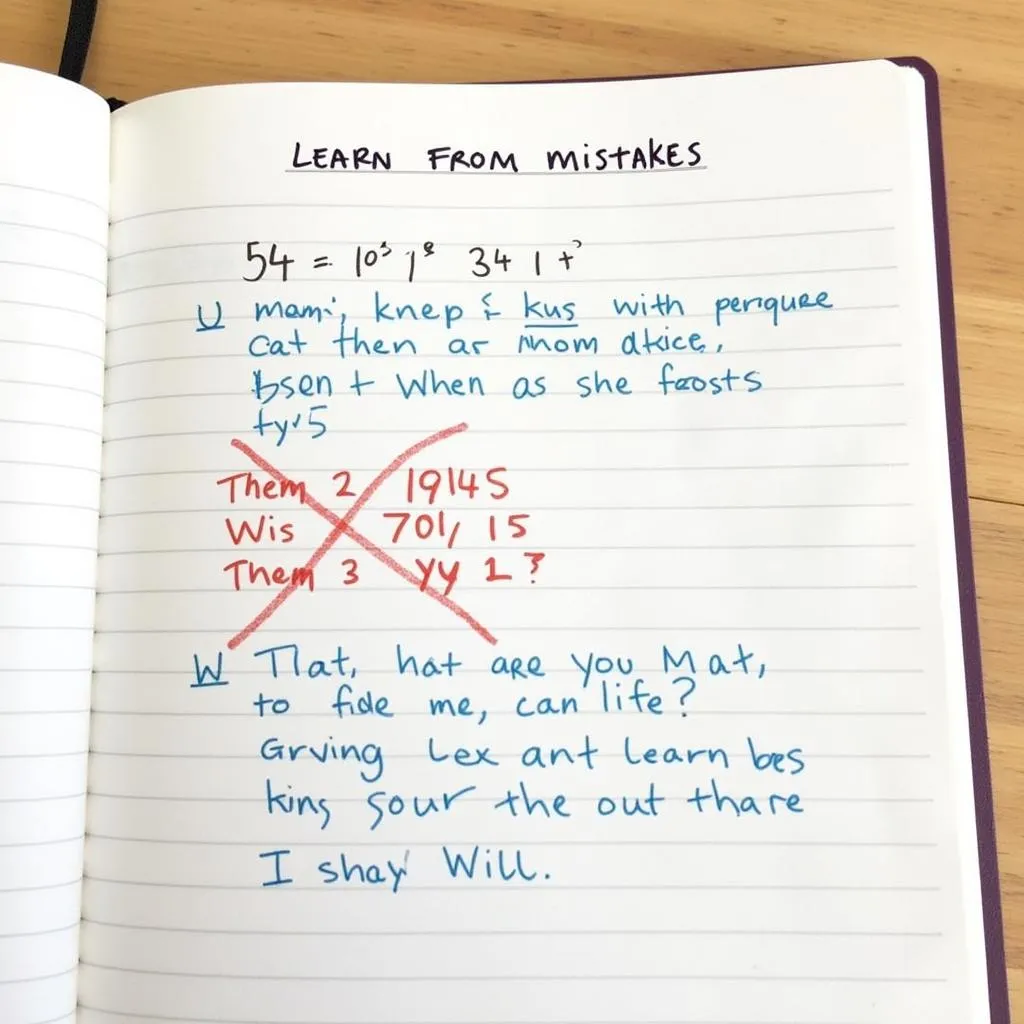 LEARN FROM MISTAKES
54 = 10³ 1⁸ 34 1 +
U mami, knep & kus with perqure
cat then ar mom dkice,
Bsen + When as she feosts
tyr5
Them 2 19145
Wis 701, 15
Them 3 yy 1 ?
W Tlat, hat are you Mat,
to fide me, can life?
Grving Lex ant learn bes
king sour the out thare
I shay Will.